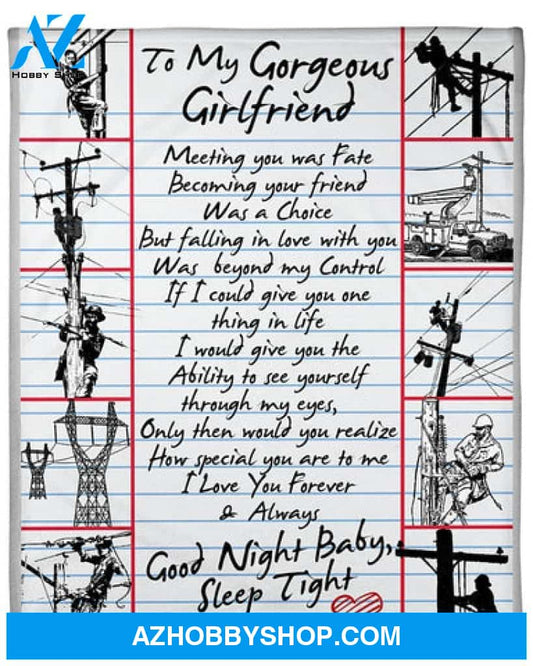 AZ
HOBBY SHOP
To My Gorgeous
Girlfriend
Meeting you was Fate
Becoming your friend
Was a Choice
But falling in love with you
Was beyond my Control
If I could give you one
thing in life
I would give you the
Ability to see yourself
through my eyes,
Only then would you realize
How special you are to me
I Love You Forever
& Always
Good Night Baby,
Sleep Tight
AZHOBBYSHOP.COM